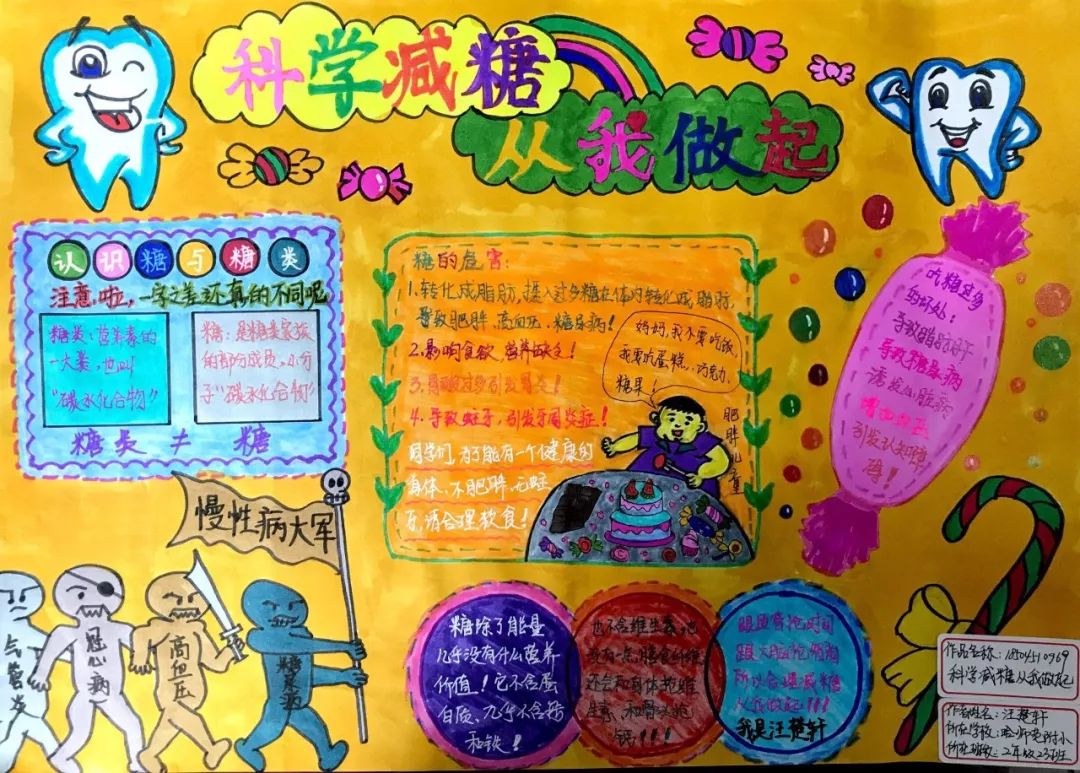 科学减糖
从我做起
认识糖与糖类
注意啦，一字之差还真的不同呢
糖类：营养素的
一大类，也叫
“碳水化合物”
糖：是糖类家族
的部分成员。小分
子“碳水化合物”
糖类 ≠ 糖
糖的危害：
1.转化成脂肪，摄入过多糖在体内转化成脂肪，
导致肥胖、高血压、糖尿病！
2.影响食欲，营养缺乏！
4.导致蛀牙，引发牙周炎症！
同学们，为了能有一个健康的
身体，不肥胖、无蛀
牙，请合理饮食！
妈妈，我不要吃饭，
我要吃蛋糕、巧克力、
糖果！
肥胖儿童
吃糖过多
的坏处：
导致脂肪肝
导致糖尿病
诱发心脏病
增加血压
引发认知障
碍！
慢性病大军
冠心病
高血压
糖尿病
糖除了能量
几乎没有什么营养
价值！它不含蛋
白质、几乎不含锌
和铁！
也不含维生素，也
没有一点膳食纤维
还会和身体抢维
生素，和骨头抢
钙！！！
所以合理减糖
从我做起！！！
我是汪楚轩
作品名称：
科学减糖从我做起
作者姓名：汪楚轩
所在学校：哈师范附小
所在班级：2年级23班